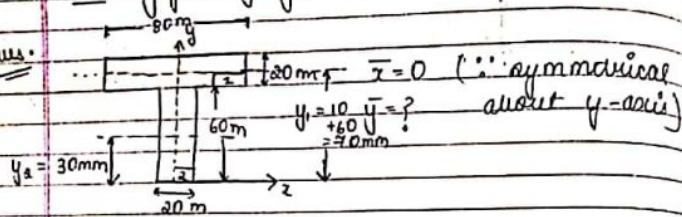 80m
y
Ans.
1
20m
x̄ = 0 (∵ symmetrical
about y-axis)
y₁ = 10
+60
= 70mm
ȳ = ?
60m
y₂ = 30mm
2
x
20 m